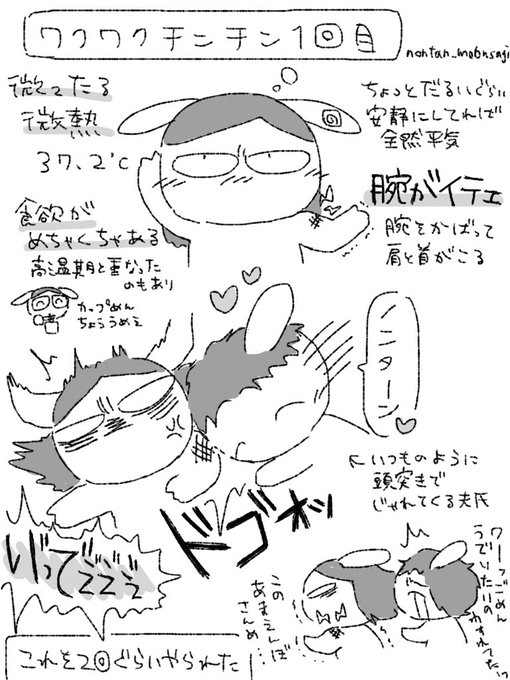 ワクワクチンチン1回目
nontan_mobusagi
微てたる
微熱
37.2℃
食欲が
めちゃくちゃある
高温期と重なった
のもあり
カップめん
ちょううめぇ
ちょっとだるいぐらい
安静にしてれば
全然平気
腕がイテェ
腕をかばって
肩と首がこる
ノンターン
←いつものように
頭突きで
じゃれてくる夫氏
ドゴォッ
い゛ってぞぞぇ
この
あまえんぼ
さんめ…
ワーッごめん
うでいたいの
わすれてたっ
これを2回ぐらいやられた